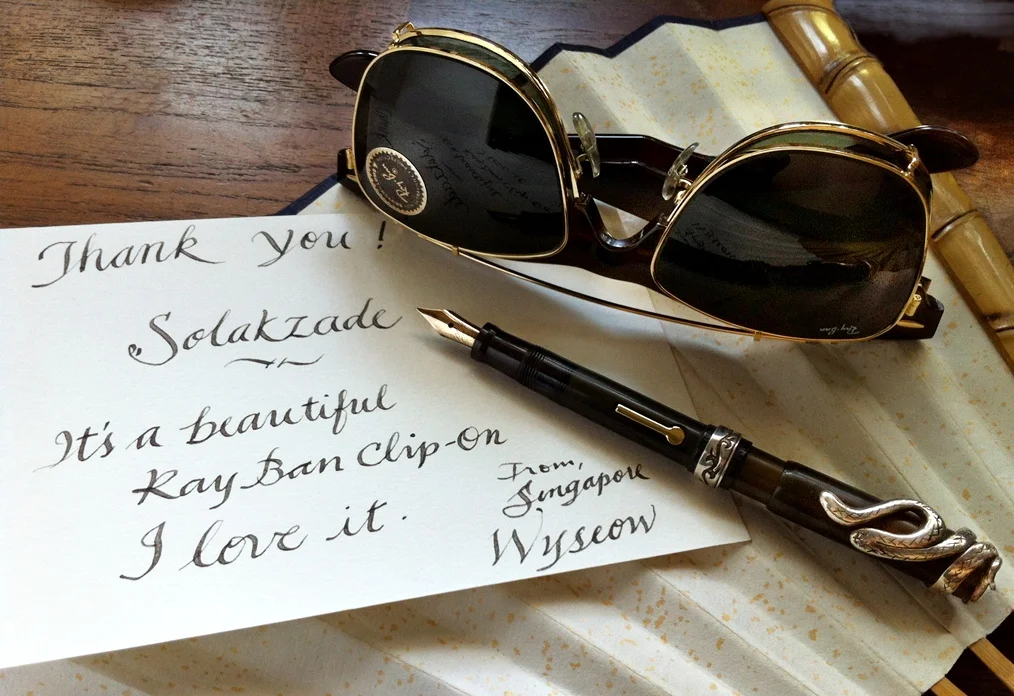 Thank you!
Solakzade
It's a beautiful
Ray Ban Clip-On
I love it.
From,
Singapore
Wyseow
Ray-Ban
Ray-Ban